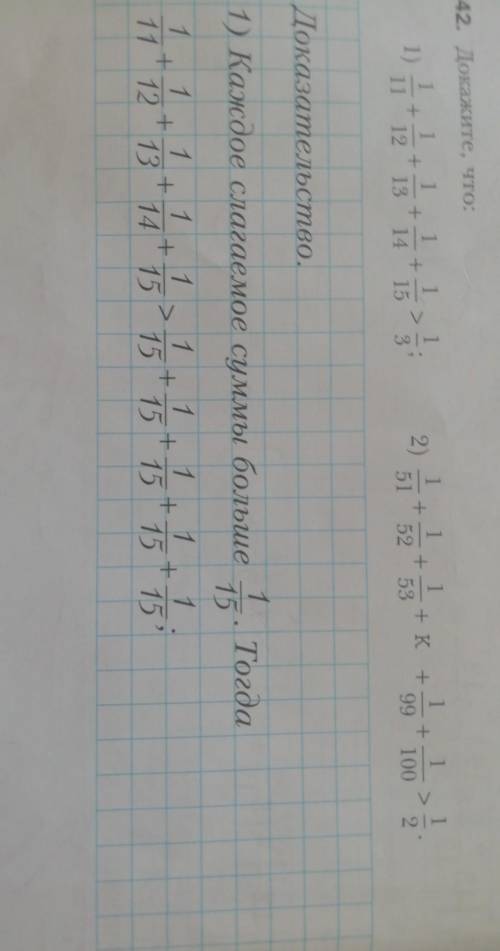 42. Докажите, что:
1) 1/11 + 1/12 + 1/13 + 1/14 + 1/15 > 1/3; 2) 1/51 + 1/52 + 1/53 + К + 1/99 + 1/100 > 1/2.
Доказательство.
1) Каждое слагаемое суммы больше 1/15. Тогда
1/11 + 1/12 + 1/13 + 1/14 + 1/15 > 1/15 + 1/15 + 1/15 + 1/15 + 1/15;